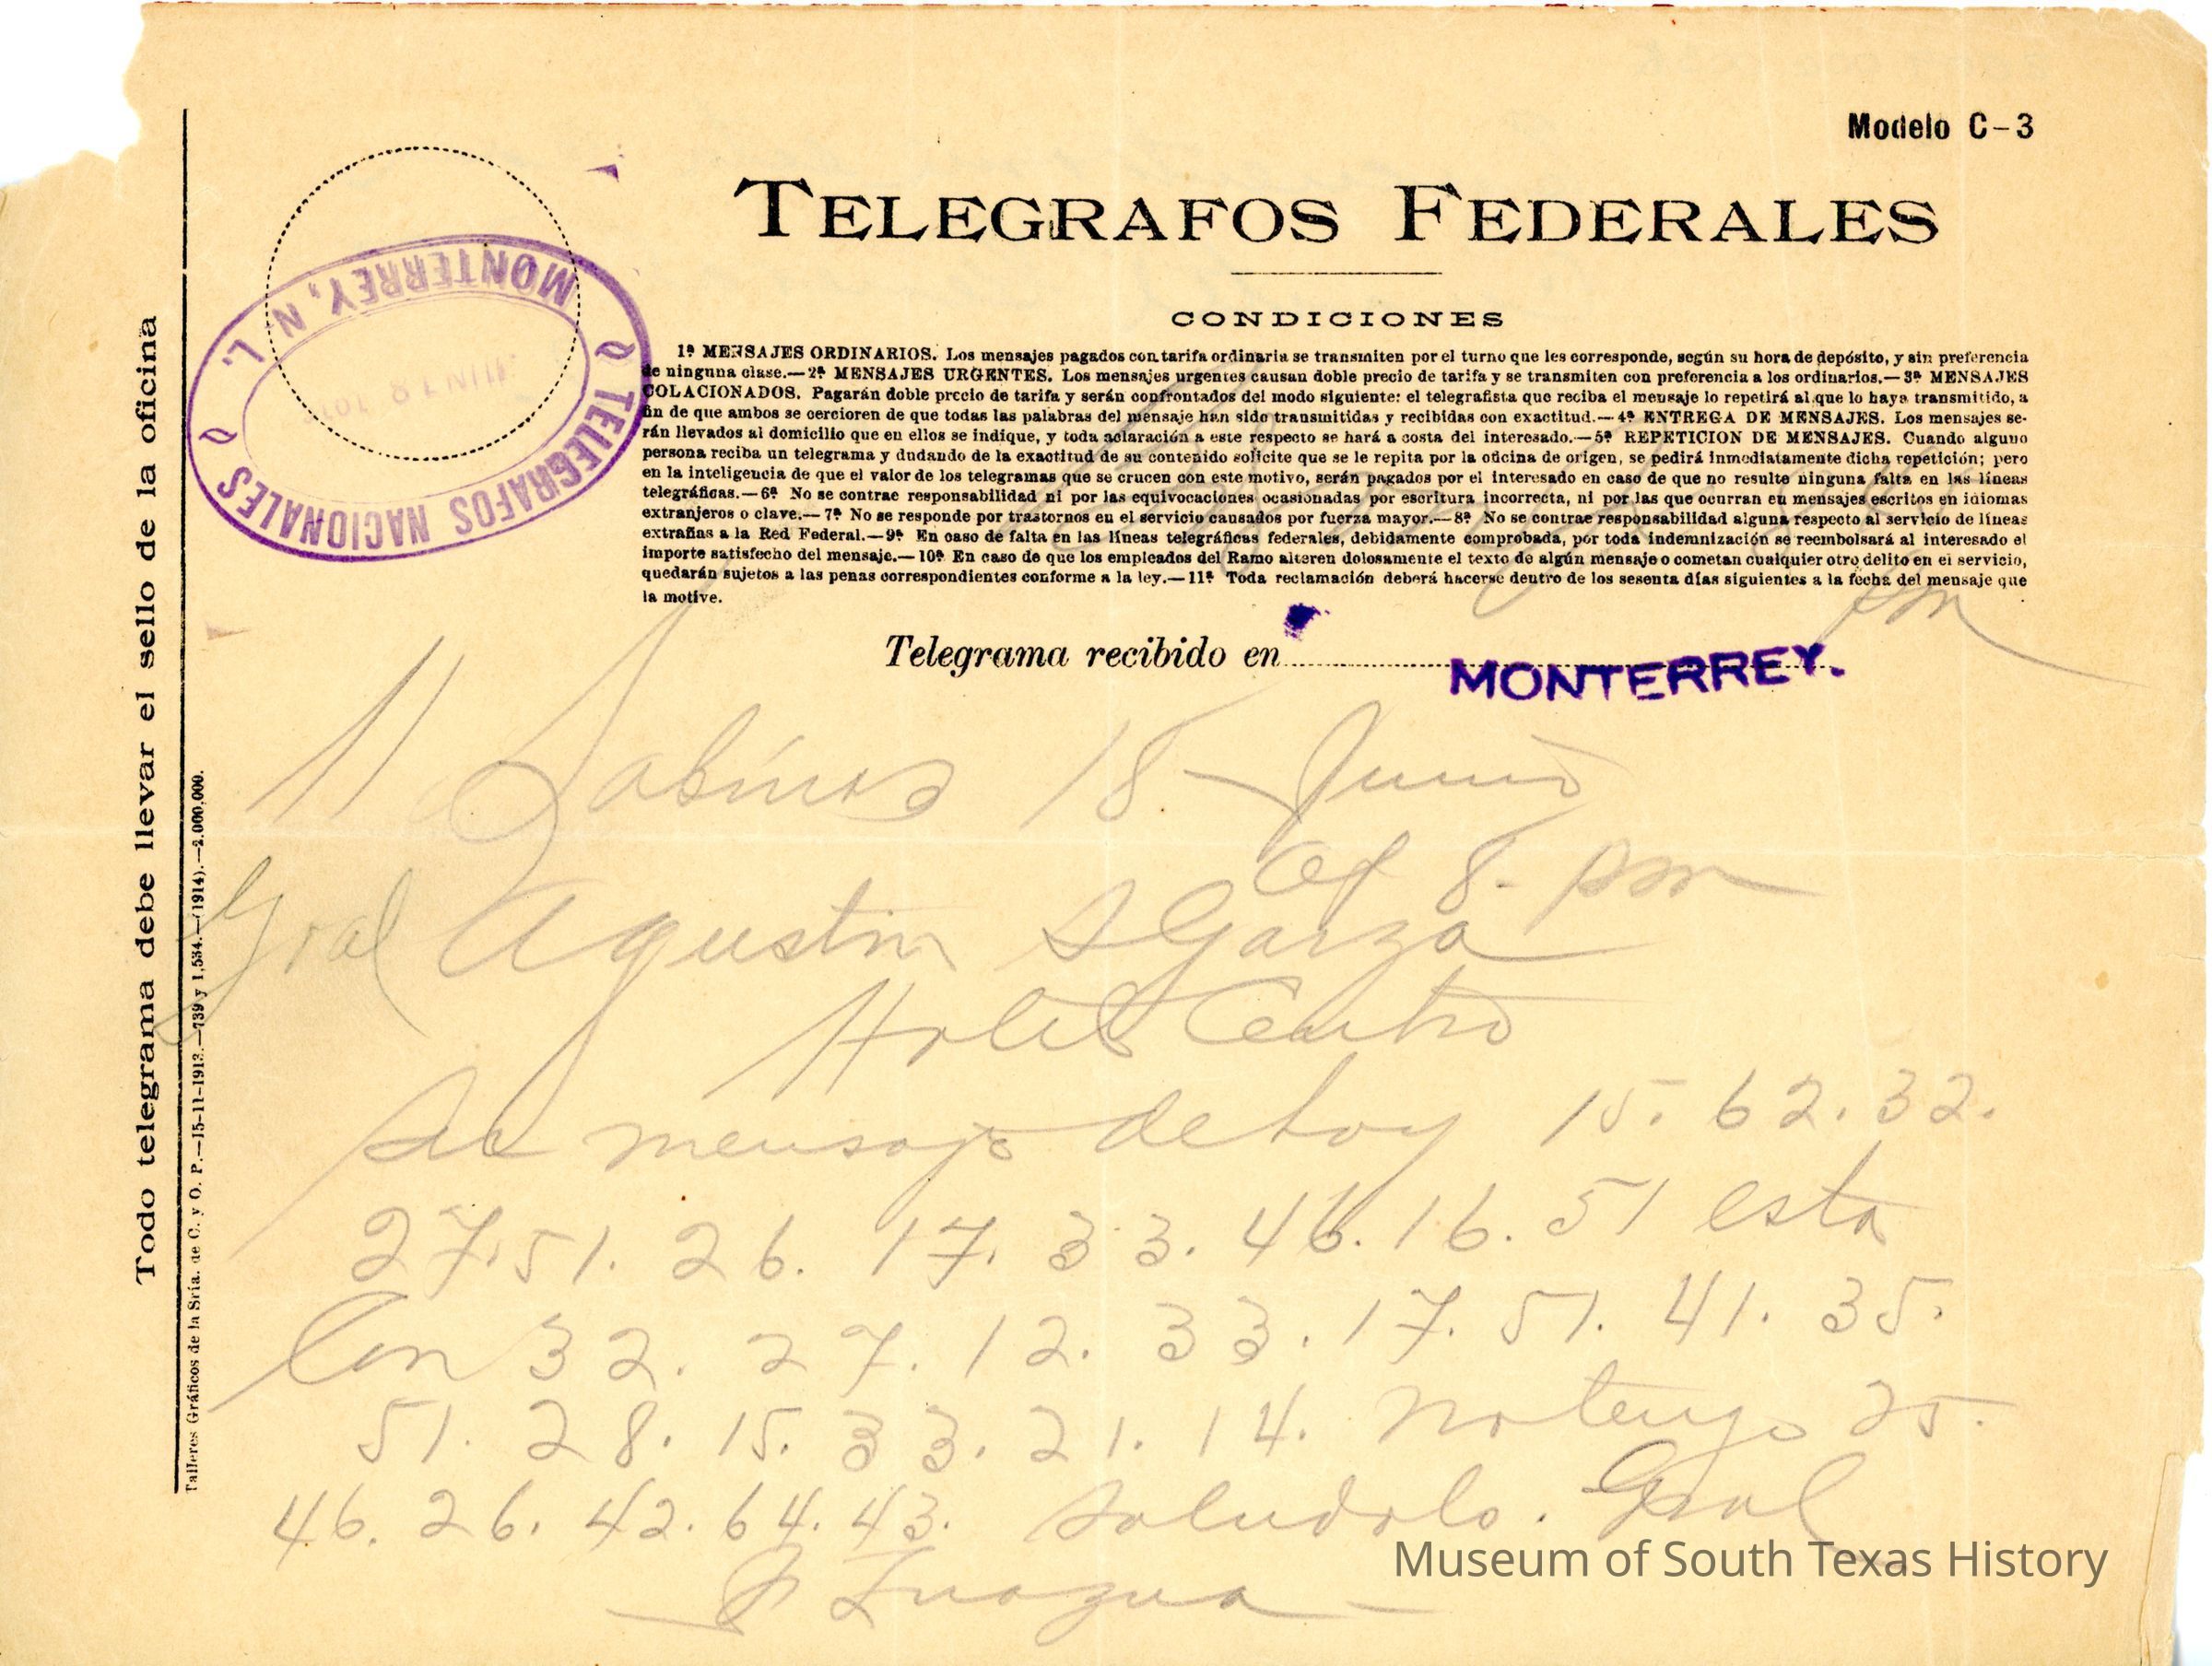 Modelo C-3
TELEGRAFOS FEDERALES
CONDICIONES
1ª MENSAJES ORDINARIOS. Los mensajes pagados con tarifa ordinaria se transmiten por el turno que les corresponde, según su hora de depósito, y sin preferencia
de ninguna clase.—2ª MENSAJES URGENTES. Los mensajes urgentes causan doble precio de tarifa y se transmiten con preferencia a los ordinarios.—3ª MENSAJES
COLACIONADOS. Pagarán doble precio de tarifa y serán confrontados del modo siguiente: el telegrafista que reciba el mensaje lo repetirá al que lo haya transmitido, a
fin de que ambos se cercioren de que todas las palabras del mensaje han sido transmitidas y recibidas con exactitud.—4ª ENTREGA DE MENSAJES. Los mensajes se-
rán llevados al domicilio que en ellos se indique, y toda aclaración a este respecto se hará a costa del interesado.—5ª REPETICION DE MENSAJES. Cuando alguno
persona reciba un telegrama y dudando de la exactitud de su contenido solicite que se le repita por la oficina de origen, se pedirá inmediatamente dicha repetición; pero
en la inteligencia de que el valor de los telegramas que se crucen con este motivo, serán pagados por el interesado en caso de que no resulte ninguna falta en las líneas
telegráficas.—6ª No se contrae responsabilidad ni por las equivocaciones ocasionadas por escritura incorrecta, ni por las que ocurran en mensajes escritos en idiomas
extranjeros o clave.—7ª No se responde por trastornos en el servicio causados por fuerza mayor.—8ª No se contrae responsabilidad alguna respecto al servicio de líneas
extrañas a la Red Federal.—9ª En caso de falta en las líneas telegráficas federales, debidamente comprobada, por toda indemnización se reembolsará al interesado el
importe satisfecho del mensaje.—10ª En caso de que los empleados del Ramo alteren dolosamente el texto de algún mensaje o cometan cualquier otro delito en el servicio,
quedarán sujetos a las penas correspondientes conforme a la ley.—11ª Toda reclamación deberá hacerse dentro de los sesenta días siguientes a la fecha del mensaje que
la motive.
pm
Telegrama recibido en MONTERREY.
MONTERREY, N. L.
JUN 18
TELEGRAFOS NACIONALES
Todo telegrama debe llevar el sello de la oficina
Talleres Gráficos de la Sría. de C. y O. P.—15-11-1913.—739 y 1,534.—(1914).—2.000,000.
11 Sabinas 18 - Junio
8. pm
Gral Agustin S Garza
Hotel Centro
Su mensaje de hoy 15. 62. 32.
27. 51. 26. 17. 33. 46. 16. 51 esta
Con 32. 27. 12. 33. 17. 51. 41. 35.
51. 28. 15. 33. 21. 14. no tengo 25.
46. 26. 42. 64. 43. Saludolo. Gral
Zuazua
Museum of South Texas History